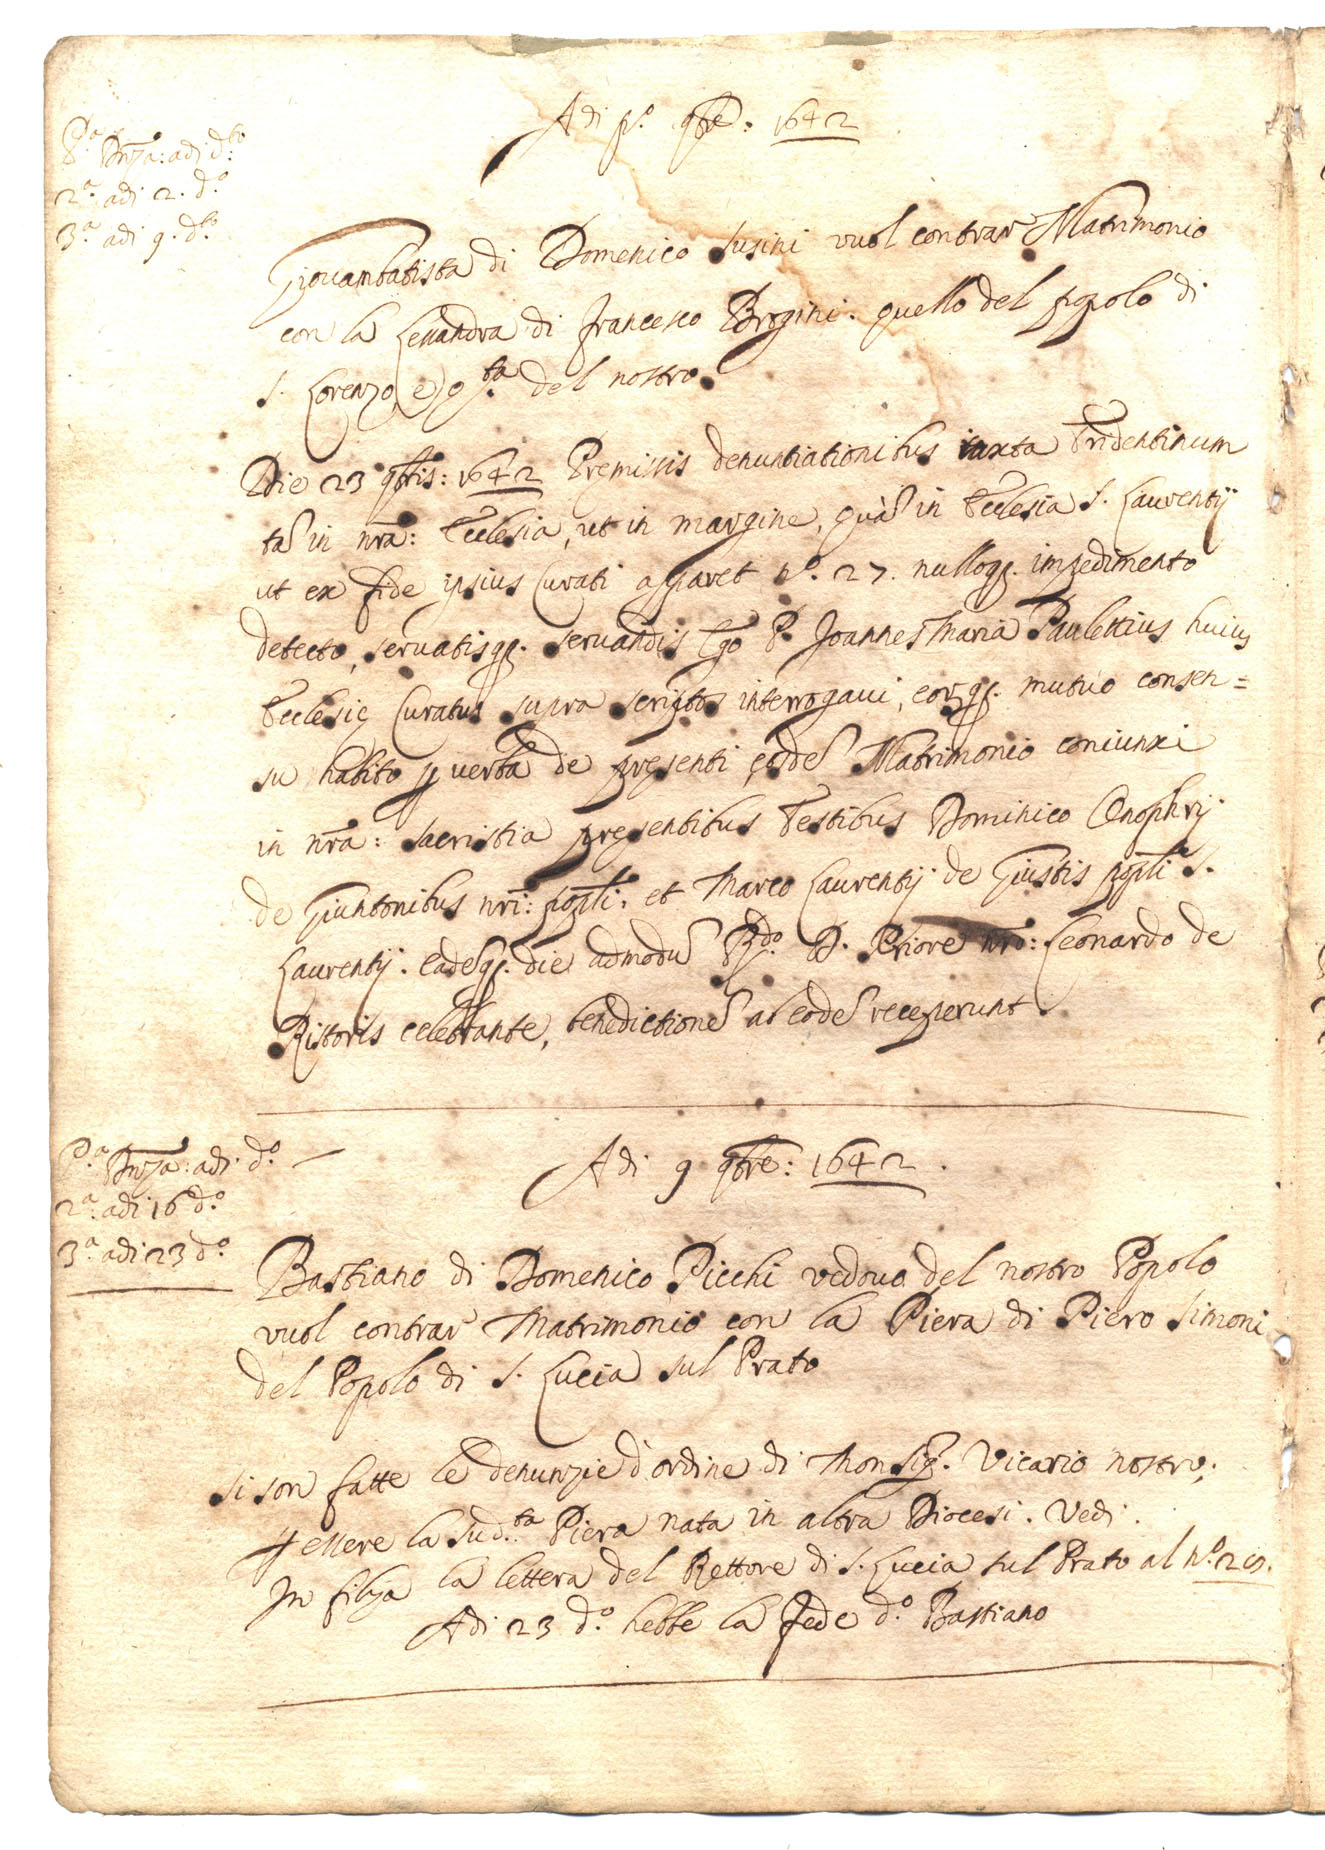 Adi p.º 9bre: 1642
P.ª Dnza: adi d.to
2.ª adi 2. d.º
3.ª adi 9. d.to
Giovanbatista di Domenico Susini vuol contrar Matrimonio
con la Lessandra di Francesco Brogini. quello del popolo di
S. Lorenzo, e q.ta del nostro.
Die 23 9bris: 1642 Premissis denuntiationibus iuxta Tridentinum
ta in nra: Ecclesia, ut in margine, quà in Ecclesia S. Laurentij
ut ex fide ipsius Curati apparet nº. 27. nulloq. impedimento
detecto, servatisq. servandis Ego P. Joannes Maria Paulettius huius
Ecclesię Curatus supra scriptos interrogaui, eorq. mutuo consen=
su habito p verba de presenti eosdē Matrimonio coniunxi
in nra: sacristia presentibus Testibus Dominico Onophrij
de Giuntonibus nri: ppli: et Marco Laurentij de Giustis ppli S.
Laurentij. eadeq. die admodū R.do D. Priore nro: Leonardo de
Ristoris celebrante, benedictionē ab eodē receperunt.
Adi 9 9bre: 1642.
P.ª Dnza: adi d.º
2.ª adi 16 d.º
3.ª adi 23 d.º
Bastiano di Domenico Picchi vedovo del nostro Popolo
vuol contrar Matrimonio con la Piera di Piero Simoni
del Popolo di S. Lucia sul Prato
Si son fatte le denunzie d'ordine di Monsig. Vicario nostro,
p essere la sud.ta Piera nata in altra Diocesi. Vedi
In filza la lettera del Rettore di S. Lucia sul Prato al nº.
Adi 23 d.º hebbe la fede d.º Bastiano